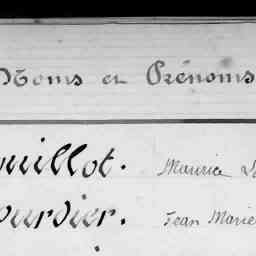 Noms et Prénoms
ouillot. Maurice
ourdier. Jean Marie